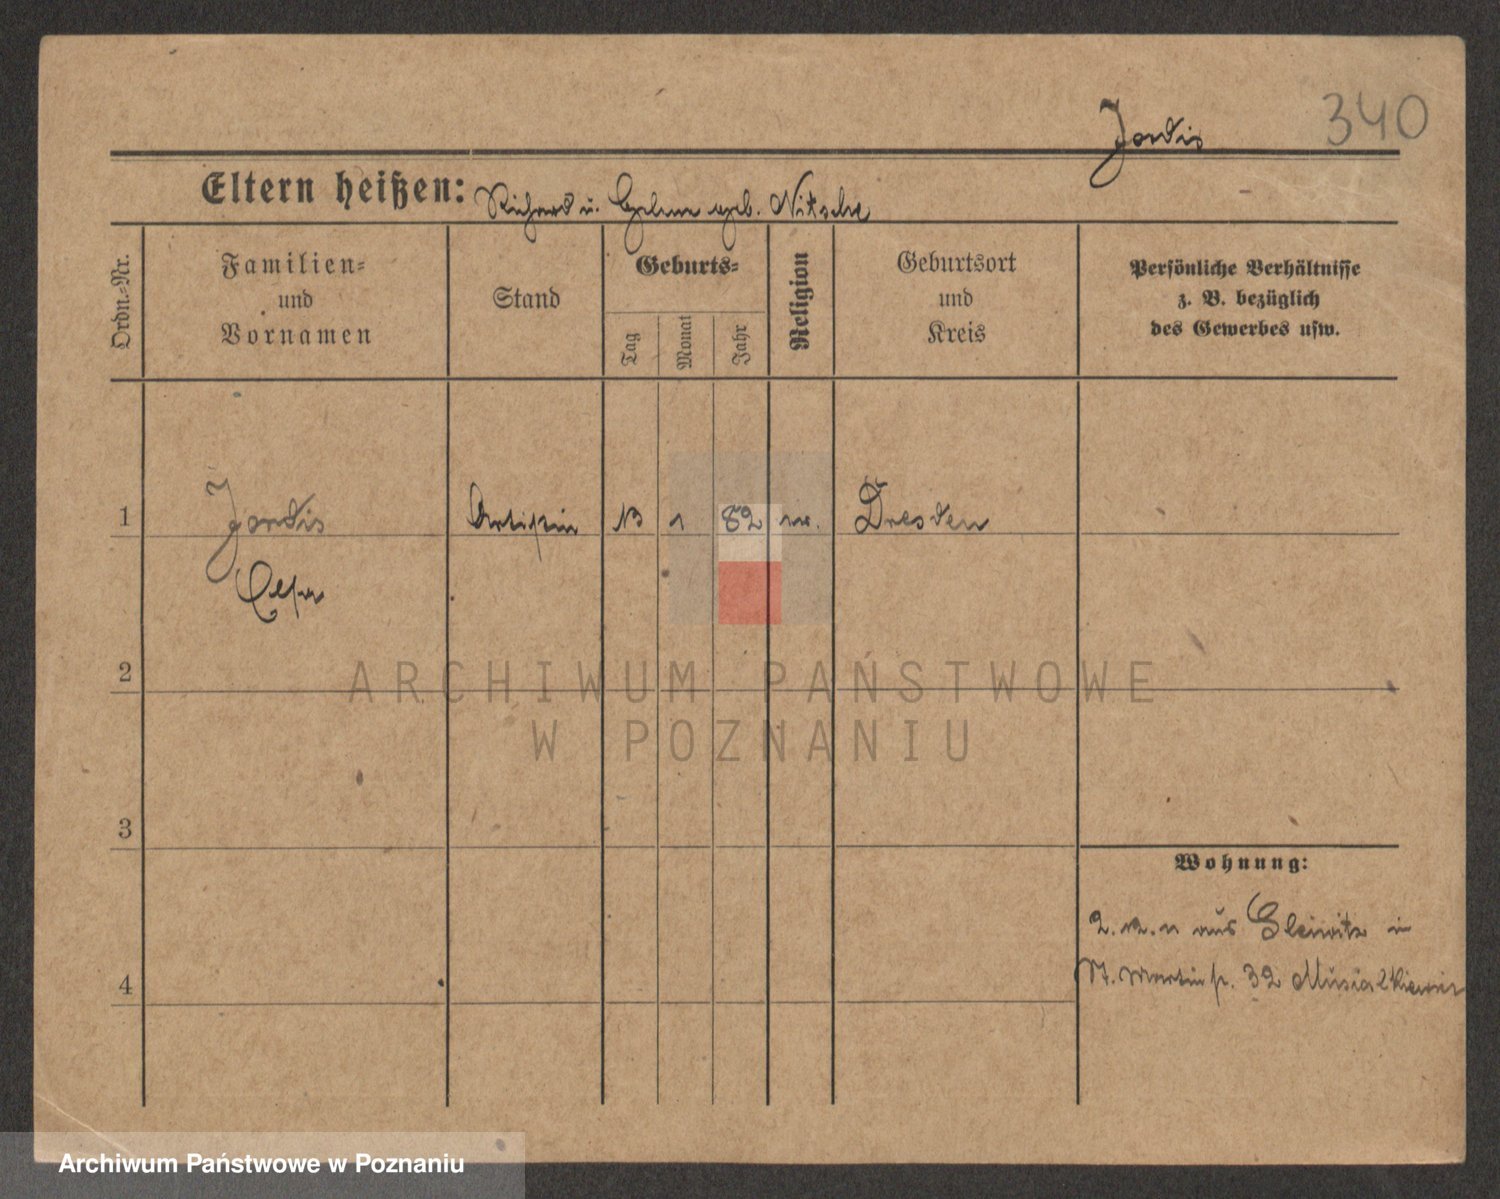 340
Jordis
Eltern heißen: Richard u. geb. Nitsche
Ordn.-Nr.
Familien-
und
Vornamen
Stand
Geburts-
Tag
Monat
Jahr
Religion
Geburtsort
und
Kreis
Persönliche Verhältnisse
z. B. bezüglich
des Gewerbes usw.
1 Jordis Artistin 13 1 82 Dresden
2
3
4
Wohnung:
2. 12. 11 aus Gleiwitz in
St. Martinstr. 32 Musialkiewicz
ARCHIWUM PAŃSTWOWE
W POZNANIU
Archiwum Państwowe w Poznaniu